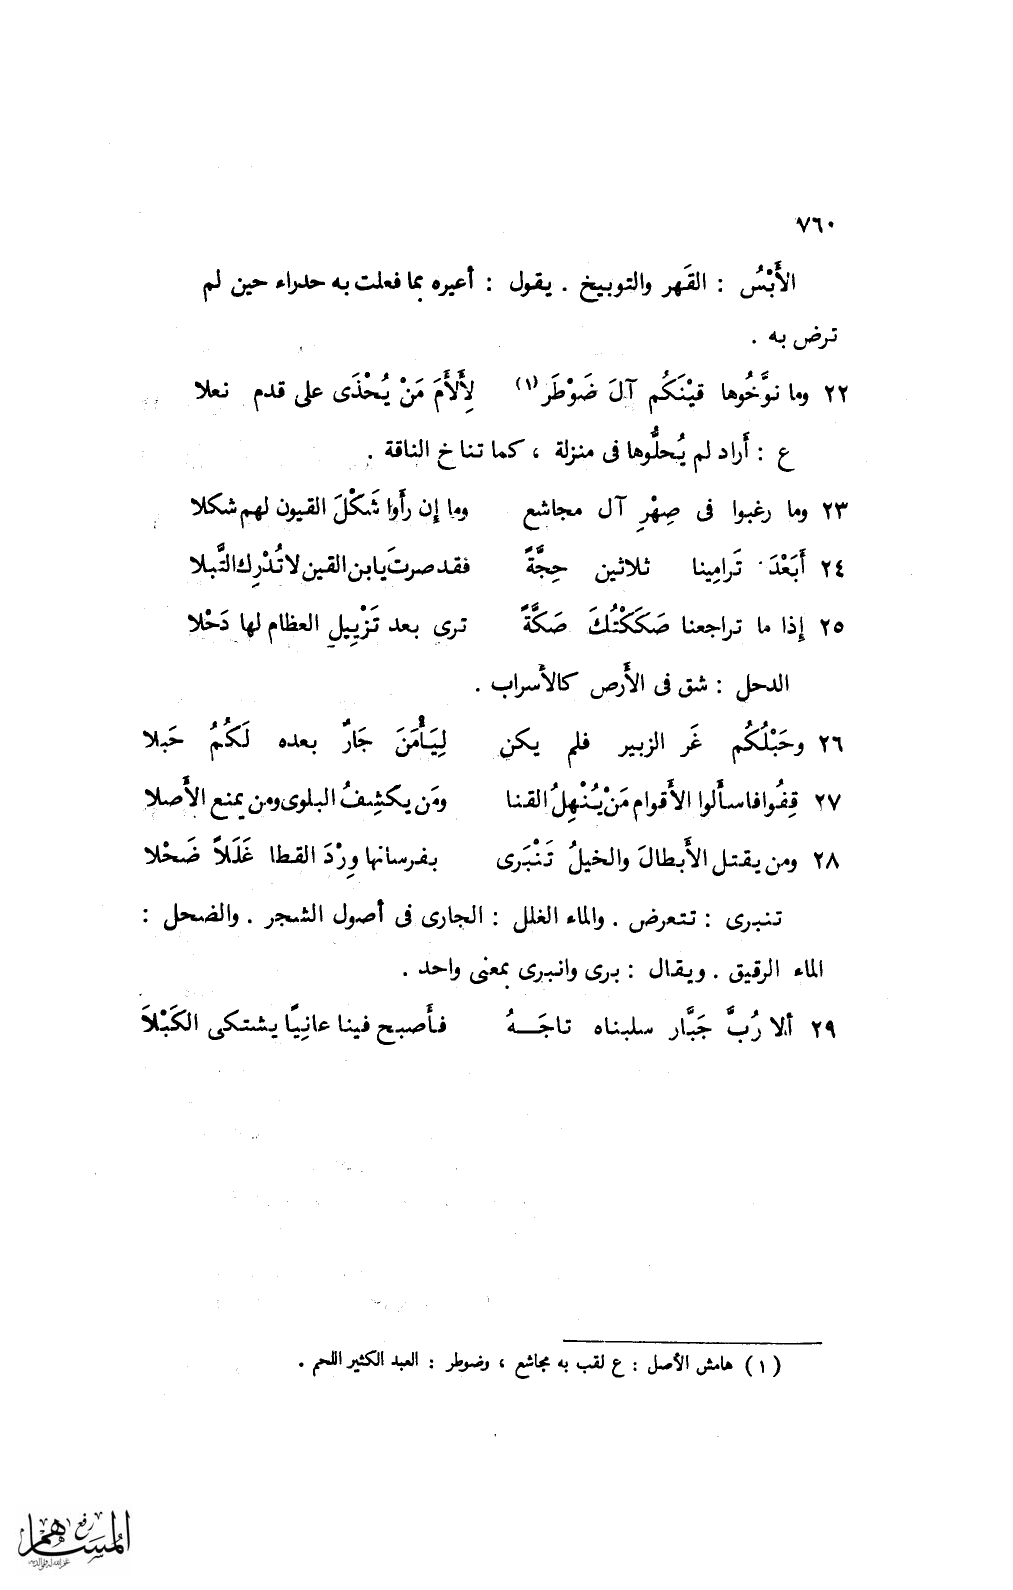 ٧٦٠
الأَبْسُ : القَهر والتوبيخ . يقول : أعيره بما فعلت به حدراء حين لم
ترض به .
٢٢ وما نوَّخُوها قيْنَكُم آلَ ضَوْطَر(١) لِأَلأَمَ مَنْ يُحْذَى على قدم نعلا
ع : أَراد لم يُحلُّوها فى منزلة ، كما تناخ الناقة .
٢٣ وما رغبوا فى صِهْرِ آل مجاشع وما إن رأَوا شَكْلَ القيون لهم شكلا
٢٤ أَبَعْدَ تَرامِينا ثلاثين حِجَّةً فقد صرتَ يابن القين لا تُدْرِك النَّبلا
٢٥ إذا ما تراجعنا صَكَكْتُكَ صَكَّةً ترى بعد تَزْيِيلِ العظام لها دَحْلا
الدحل : شق فى الأَرض كالأسراب .
٢٦ وحَبْلُكُم غَر الزبير فلم يكن لِيَأْمَنَ جَارٌ بعده لَكُمُ حَبلا
٢٧ قِفُوا فاسأَلوا الأَقوام مَنْ يُنْهِلُ القنا ومَن يكشِفُ البلوى ومن يمنع الأَصلا
٢٨ ومن يقتل الأَبطالَ والخيلُ تَنْبَرى بفرسانها وِرْدَ القطا غَلَلاً ضَحْلا
تنبرى : تتعرض . والماء الغلل : الجارى فى أصول الشجر . والضحل :
الماء الرقيق . ويقال : برى وانبرى بمعنى واحد .
٢٩ ألا رُبَّ جَبَّار سلبناه تاجَـــهُ فأَصبح فينا عانِيًا يشتكى الكَبْلاَ
(١) هامش الأصل : ع لقب به مجاشع ، وضوطر : العبد الكثير اللحم .
رفع
المساهم